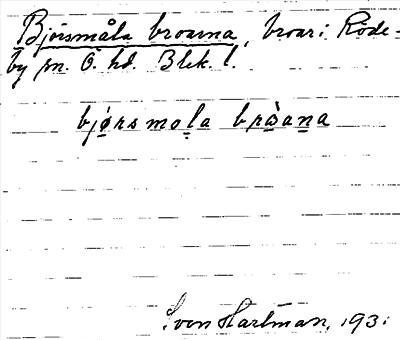 Björsmåla broarna, broar i Röde-
by sn. Ö. hd. Blek. l.
bjørsmola bròana
Sven Hartman, 193